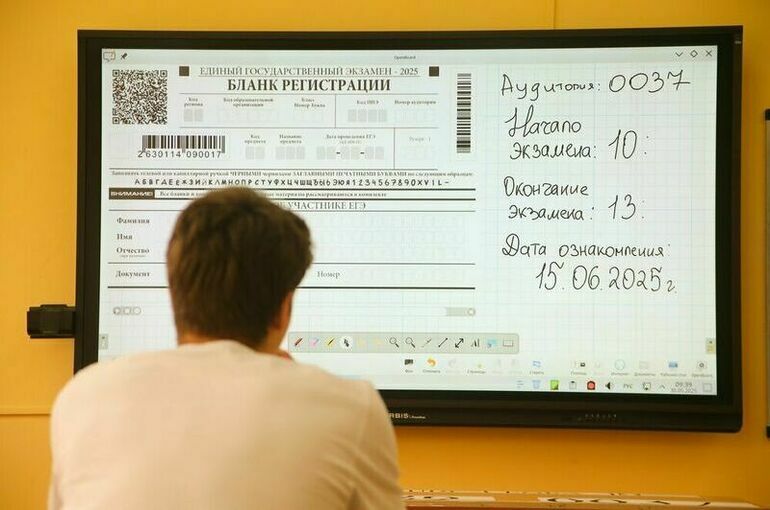 OpenBoard
ЕДИНЫЙ ГОСУДАРСТВЕННЫЙ ЭКЗАМЕН - 2025
БЛАНК РЕГИСТРАЦИИ
Код региона
Код образовательной организации
Класс Номер Буква
Код ППЭ
Номер аудитории
2630114 090017
Код предмета
Название предмета
Дата проведения ЕГЭ
Резерв - 1
Заполнять гелевой или капиллярной ручкой ЧЕРНЫМИ чернилами ЗАГЛАВНЫМИ ПЕЧАТНЫМИ БУКВАМИ по следующим образцам:
АБВГДЕЁЖЗИЙКЛМНОПРСТУФХЦЧШЩЪЫЬЭЮЯ1234567890XVIL-
ВНИМАНИЕ!
Все бланки и
рассматриваются в комплекте
ОБ УЧАСТНИКЕ ЕГЭ
Фамилия
Имя
Отчество
Документ
Номер
Аудитория: 0037
Начало
экзамена: 10:
Окончание
экзамена: 13:
Дата ознакомления:
15.06.2025г.
РУС
09:39
30.05.2025